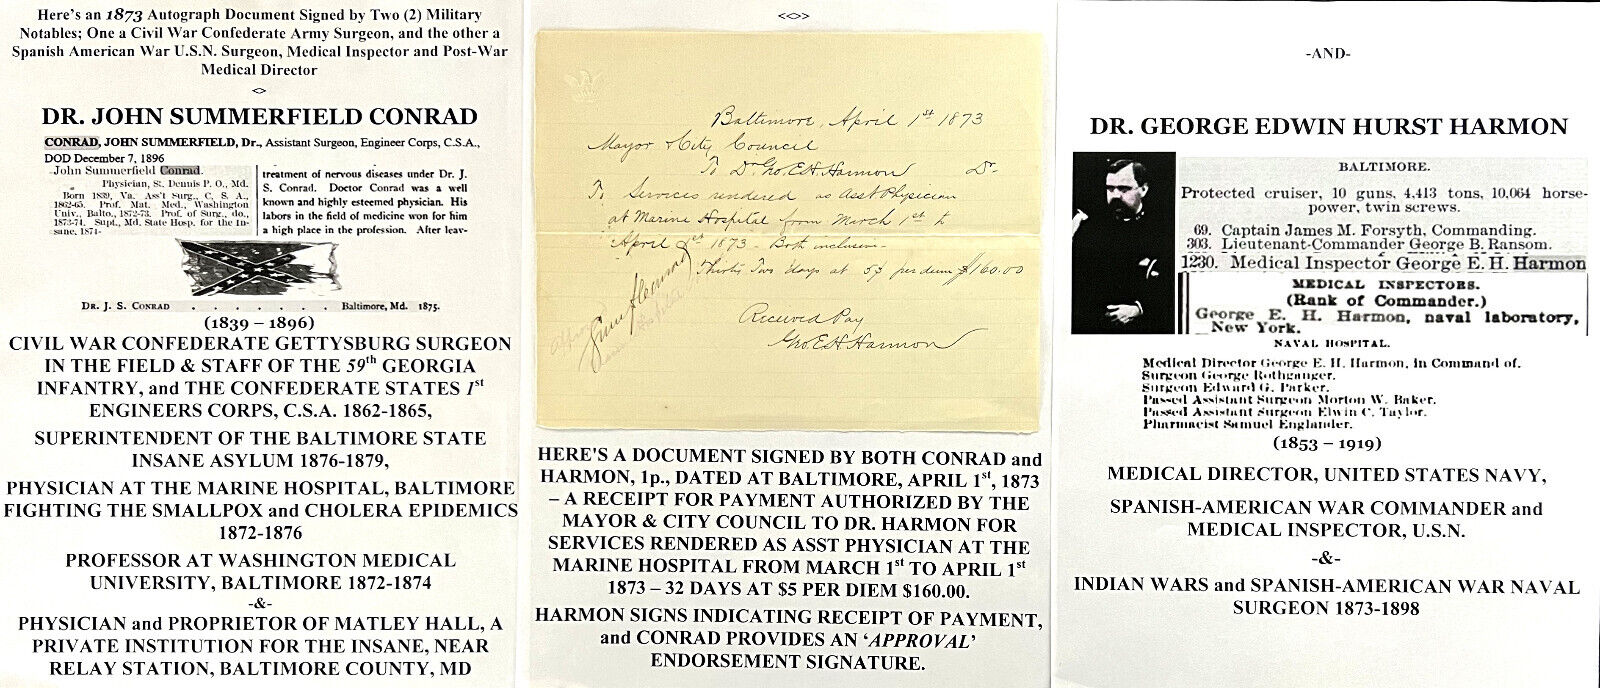 Here's an 1873 Autograph Document Signed by Two (2) Military
Notables; One a Civil War Confederate Army Surgeon, and the other a
Spanish American War U.S.N. Surgeon, Medical Inspector and Post-War
Medical Director
<>
DR. JOHN SUMMERFIELD CONRAD
CONRAD, JOHN SUMMERFIELD, Dr., Assistant Surgeon, Engineer Corps, C.S.A.,
DOD December 7, 1896
John Summerfield Conrad.
Physician, St. Dennis P. O., Md.
Born 1839, Va. Ass't Surg., C. S. A.,
1862-65. Prof. Mat. Med., Washington
Univ., Balto., 1872-73. Prof. of Surg., do.,
1873-74. Supt., Md. State Hosp. for the In-
sane, 1874-
treatment of nervous diseases under Dr. J.
S. Conrad. Doctor Conrad was a well
known and highly esteemed physician. His
labors in the field of medicine won for him
a high place in the profession. After leav-
DR. J. S. CONRAD . . . . . . . Baltimore, Md. 1875.
(1839 – 1896)
CIVIL WAR CONFEDERATE GETTYSBURG SURGEON
IN THE FIELD & STAFF OF THE 59th GEORGIA
INFANTRY, and THE CONFEDERATE STATES 1st
ENGINEERS CORPS, C.S.A. 1862-1865,
SUPERINTENDENT OF THE BALTIMORE STATE
INSANE ASYLUM 1876-1879,
PHYSICIAN AT THE MARINE HOSPITAL, BALTIMORE
FIGHTING THE SMALLPOX and CHOLERA EPIDEMICS
1872-1876
PROFESSOR AT WASHINGTON MEDICAL
UNIVERSITY, BALTIMORE 1872-1874
-&-
PHYSICIAN and PROPRIETOR OF MATLEY HALL, A
PRIVATE INSTITUTION FOR THE INSANE, NEAR
RELAY STATION, BALTIMORE COUNTY, MD
<<>>
Baltimore, April 1st 1873
Mayor & City Council
To Dr. Geo. E. H. Harmon Dr.
To Services rendered as Asst Physician
at Marine Hospital from March 1st to
April 1st 1873 - Both inclusive -
Thirty Two days at 5$ per diem $160.00
Received Pay
Geo. E. H. Harmon
HERE'S A DOCUMENT SIGNED BY BOTH CONRAD and
HARMON, 1p., DATED AT BALTIMORE, APRIL 1st, 1873
– A RECEIPT FOR PAYMENT AUTHORIZED BY THE
MAYOR & CITY COUNCIL TO DR. HARMON FOR
SERVICES RENDERED AS ASST PHYSICIAN AT THE
MARINE HOSPITAL FROM MARCH 1st TO APRIL 1st
1873 – 32 DAYS AT $5 PER DIEM $160.00.
HARMON SIGNS INDICATING RECEIPT OF PAYMENT,
and CONRAD PROVIDES AN 'APPROVAL'
ENDORSEMENT SIGNATURE.
-AND-
DR. GEORGE EDWIN HURST HARMON
BALTIMORE.
Protected cruiser, 10 guns, 4,413 tons, 10,064 horse-
power, twin screws.
69. Captain James M. Forsyth, Commanding.
303. Lieutenant-Commander George B. Ransom.
1230. Medical Inspector George E. H. Harmon
MEDICAL INSPECTORS.
(Rank of Commander.)
George E. H. Harmon, naval laboratory,
New York.
NAVAL HOSPITAL.
Medical Director George E. H. Harmon, in Command of.
Surgeon George Rothganger.
Surgeon Edward G. Parker.
Passed Assistant Surgeon Morton W. Baker.
Passed Assistant Surgeon Elwin C. Taylor.
Pharmacist Samuel Englander.
(1853 – 1919)
MEDICAL DIRECTOR, UNITED STATES NAVY,
SPANISH-AMERICAN WAR COMMANDER and
MEDICAL INSPECTOR, U.S.N.
-&-
INDIAN WARS and SPANISH-AMERICAN WAR NAVAL
SURGEON 1873-1898